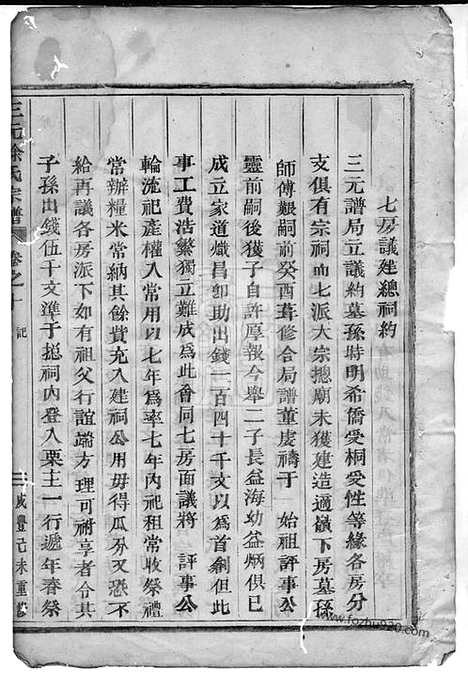 七房議建總祠約
三元譜局立議約墓孫時明希僑受桐受性等緣各房分
支俱有宗祠而七派大宗摠廟未獲建造適嶺下房墓孫
師傅艱嗣前癸酉葺修合局譜董虔禱于 始祖評事公
靈前嗣後獲子自許厚報今舉二子長益海幼益炳俱已
成立家道熾昌卽助出錢一百四十千文以爲首剏但此
事工費浩繁獨立難成爲此會同七房面議將 評事公
輪流祀產權入常用以七年爲率七年內祀租常收祭禮
常辦糧米常納其餘費充入建祠公用毋得瓜分又恐不
給再議各房派下如有祖父行誼端方理可祔享者令其
子孫出錢伍千文準于摠祠內登入栗主一行遞年春祭
三元徐氏宗譜
卷之一
記
咸豐己未重修
www.fozhu920.com